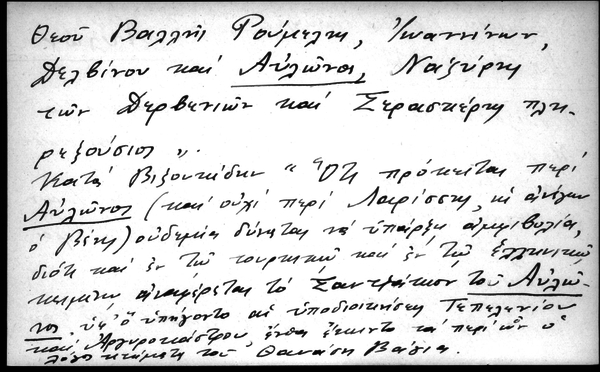 Θεοῦ Βαλλῆς Ρούμελης, Ἰωαννίνων,
Δελβίνου καί Αὐλῶνος, Ναζύρης
τῶν Δερβενιῶν καί Σερασκέρης πλη-
ρεξούσιος".
Κατά Βιζουκίδην "Ὅτι πρόκειται περί
Αὐλῶνος (καί οὐχί περί Λαρίσσης, ὡς
ὁ Βέης) οὐδεμία δύναται νά ὑπάρξῃ ἀμφιβολία,
διότι καί ἐν τῷ τουρκικῷ καί ἐν τῷ ἑλληνικῷ
κειμένῳ ἀναφέρεται τό Σαντζάκιον τοῦ Αὐλῶ-
νος, ὑφ' ὅ ὑπήγοντο αἱ ὑποδιοικήσεις Τεπελενίου
καί Ἀργυροκάστρου, ἔνθα ἔκειντο τά περί ὧν ὁ
λόγος κτήματα τοῦ Θανάση Βάγια.